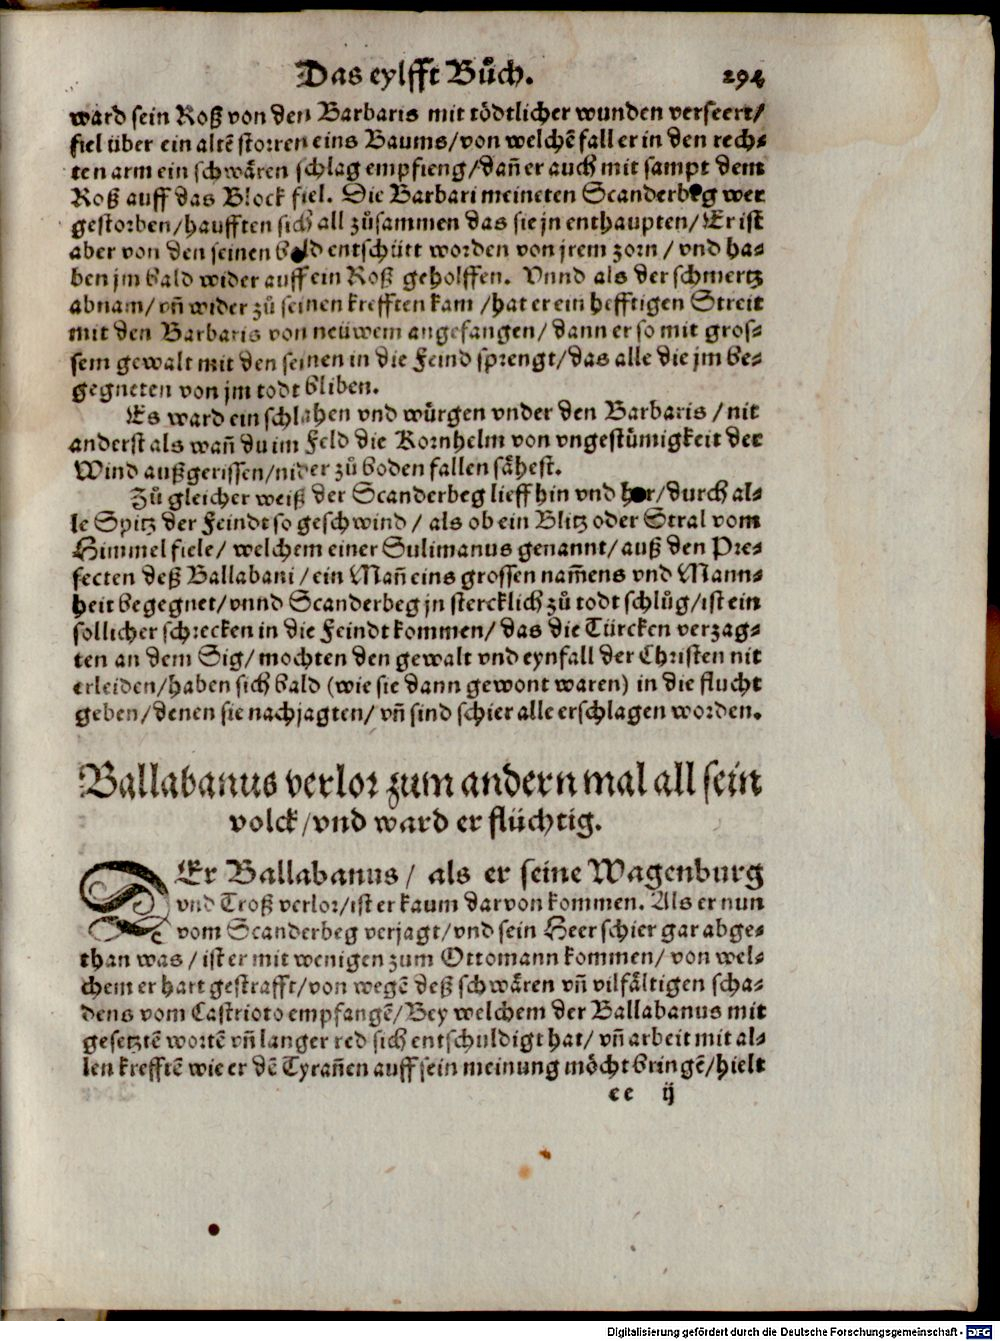 Das eylfft Bůch. 294
ward sein Roß von den Barbaris mit tödtlicher wunden verseert/
fiel über ein altē storren eins Baums/von welchē fall er in den rech-
ten arm ein schwären schlag empfieng/dañ er auch mit sampt dem
Roß auff das Block fiel. Die Barbari meineten Scanderbeg wer
gestorben/haufften sich all zůsammen das sie jn enthaupten/Er ist
aber von den seinen bald entschütt worden von jrem zorn/vnd ha-
ben jm bald wider auff ein Roß geholffen. Vnnd als der schmertz
abnam/vñ wider zů seinen krefften kam/hat er ein hefftigen Streit
mit den Barbaris von neüwem angefangen/dann er so mit gros-
sem gewalt mit den seinen in die Feind sprengt/das alle die jm be-
gegneten von jm todt bliben.
Es ward ein schlahen vnd würgen vnder den Barbaris/nit
anderst als wañ du im Feld die Kornhelm von vngestümigkeit der
Wind außgerissen/nider zů boden fallen sähest.
Zů gleicher weiß der Scanderbeg lieff hin vnd her/durch al-
le Spitz der Feindt so geschwind/als ob ein Blitz oder Stral vom
Himmel fiele/welchem einer Sulimanus genannt/auß den Pre-
fecten deß Ballabani/ein Mañ eins grossen nam̄ens vnd Mann-
heit begegnet/vnnd Scanderbeg jn stercklich zů todt schlůg/ist ein
sollicher schrecken in die Feindt kommen/das die Türcken verzag-
ten an dem Sig/mochten den gewalt vnd eynfall der Christen nit
erleiden/haben sich bald (wie sie dann gewont waren) in die flucht
geben/denen sie nachjagten/vñ sind schier alle erschlagen worden.
Ballabanus verlor zum andern mal all sein
volck/vnd ward er flüchtig.
DEr Ballabanus/als er seine Wagenburg
vnd Troß verlor/ist er kaum darvon kommen. Als er nun
vom Scanderbeg verjagt/vnd sein Heer schier gar abge-
than was/ist er mit wenigen zum Ottomann kommen/von wel-
chem er hart gestrafft/von wegē deß schwären vñ vilfältigen scha-
dens vom Castrioto empfangē/Bey welchem der Ballabanus mit
gesetztē wortē vñ langer red sich entschuldigt hat/vñ arbeit mit al-
len krefftē wie er dē Tyrañen auff sein meinung möcht bringē/hielt
ee ij
Digitalisierung gefördert durch die Deutsche Forschungsgemeinschaft - DFG